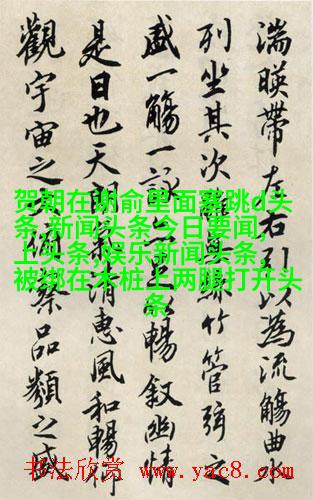 湍暎帶左右引以為流觴曲
列坐其次雖無絲竹管弦之
盛一觴一詠以暢敘幽情
是日也天朗氣清惠風和暢仰
觀宇宙之大俯察品類之盛
贺朝在谢俞里面塞跳d头
条,新闻头条今日要闻,
上头条,娱乐新闻头条,
被绑在木桩上两腿打开头
条
书法欣赏 www.yac8.com